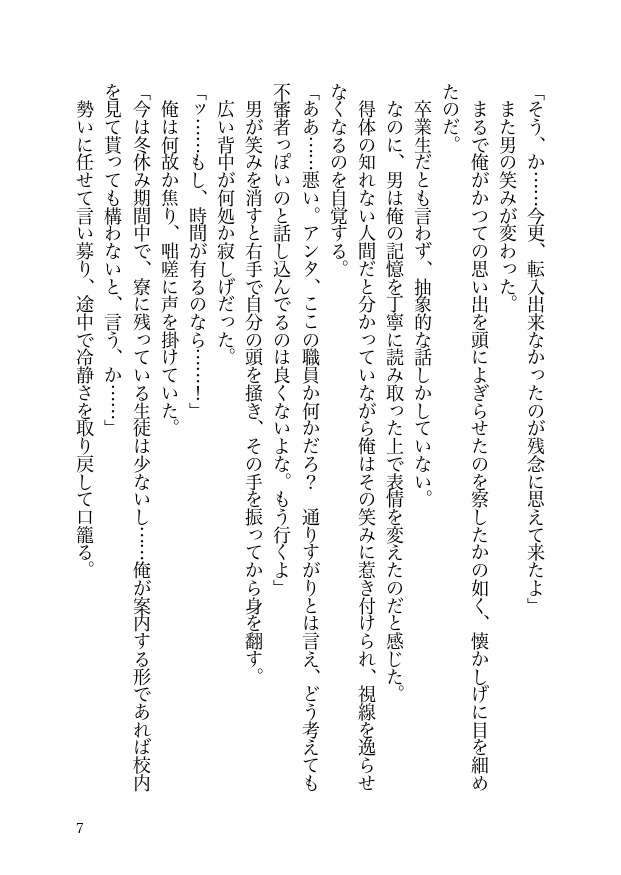 「そう、か……今更、転入出来なかったのが残念に思えて来たよ」
また男の笑みが変わった。
まるで俺がかつての思い出を頭によぎらせたのを察したかの如く、懐かしげに目を細め
たのだ。
卒業生だとも言わず、抽象的な話しかしていない。
なのに、男は俺の記憶を丁寧に読み取った上で表情を変えたのだと感じた。
得体の知れない人間だと分かっていながら俺はその笑みに惹き付けられ、視線を逸らせ
なくなるのを自覚する。
「ああ……悪い。アンタ、ここの職員か何かだろ?　通りすがりとは言え、どう考えても
不審者っぽいのと話し込んでるのは良くないよな。もう行くよ」
男が笑みを消すと右手で自分の頭を掻き、その手を振ってから身を翻す。
広い背中が何処か寂しげだった。
「ッ……もし、時間が有るのなら……!」
俺は何故か焦り、咄嗟に声を掛けていた。
「今は冬休み期間中で、寮に残っている生徒は少ないし……俺が案内する形であれば校内
を見て貰っても構わないと、言う、か……」
勢いに任せて言い募り、途中で冷静さを取り戻して口籠る。
7